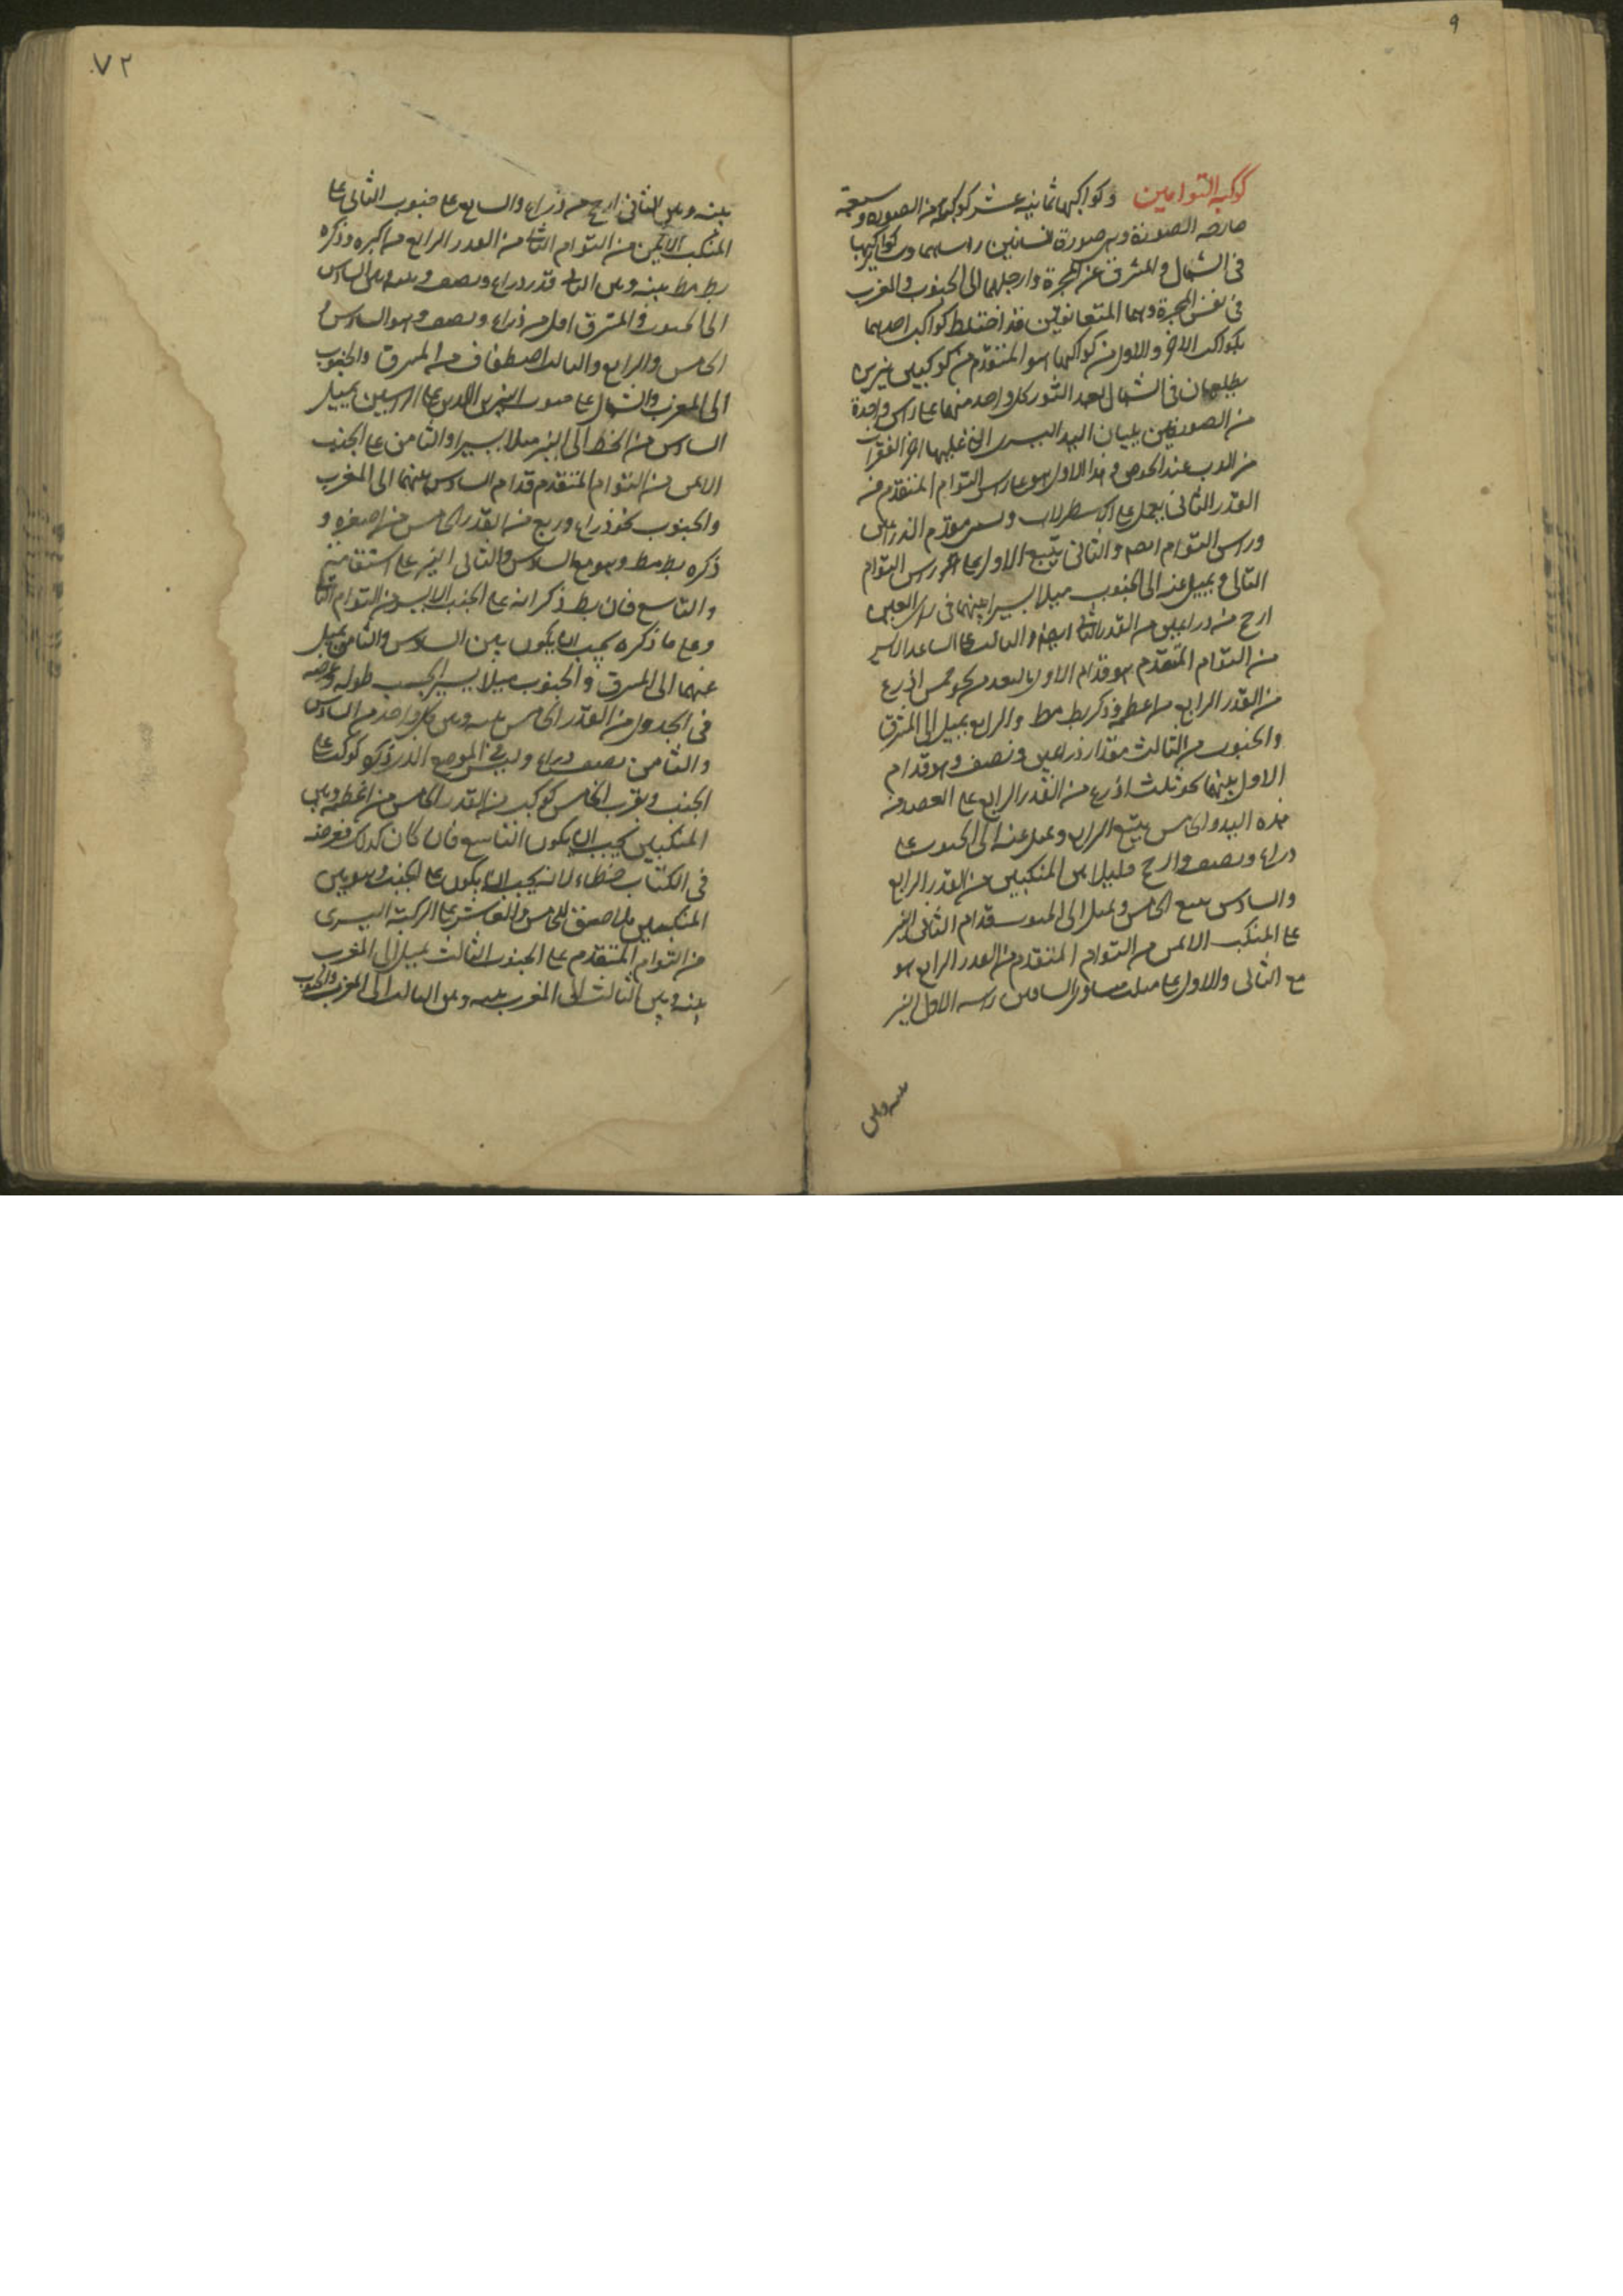 ٩
كوكبة التوامين وكواكبها ثمانية عشر كوكبا من الصورة وسبعة
خارج الصورة وهي صورة انسانين راسهما وسائر كواكبهما
في الشمال والمشرق عن المجرة وارجلهما الى الجنوب والمغرب
في نفس المجرة وهما المتعانقين قد اختلط كواكب احدهما
بكواكب الاخر والاول من كواكبها هو المتقدم من كوكبين نيرين
يطلعان في الشمال بعد الثور كل واحد منهما على راس واحدة
من الصورتين يليان اليد اليسرى التي عليها اخر الفقرات
من الدب عند الحوض وهذا الاول هو على راس التوام المتقدم من
القدر الثاني يعمل على الاسطرلاب ويسمى مقدم الذراعين
وراس التوام ايضا والثاني يتبع الاول على راس التوام
التالي ويميل عنه الى الجنوب ميلا يسيرا بينهما في راى العين
ارجح من ذراعين من القدر الثاني ايضا والثالث على الساعد الايسر
من التوام المتقدم هو قدام الاول بالبعد من نحو خمس اذرع
من القدر الرابع من اعظمه وذكر بط مط والرابع يميل الى المشرق
والجنوب من الثالث مقدار ذراعين ونصف وهو قدام
الاول بينهما نحو ثلث اذرع من القدر الرابع على العضد من
هذه اليد والخامس يتبع الرابع ويميل عنه الى الجنوب على
ذراع ونصف وارجح قليلا بين المنكبين من القدر الرابع
والسادس يتبع الخامس ويميل الى الجنوب قدام الثاني النير
على المنكب الايمن من التوام المتقدم من القدر الرابع هو
مع الثاني والاول على مثلث متساوي الساقين راسه الاول النير
بينه وبين
٧٢
بينه وبين الثاني ارجح من ذراع والسابع على جنوب الثاني على
المنكب الايمن من التوام الثاني من القدر الرابع من اكبره وذكره
بط مط بينه وبين الثاني قدر ذراع ونصف وبينه وبين السادس
الى الجنوب والمشرق اقل من ذراع ونصف وهو والسادس و
الخامس والرابع والثالث اصطفاف من المشرق والجنوب
الى المغرب والشمال على جنوب النيرين اللذين على الراسين يميل
السادس من الخط الى النير ميلا يسيرا والثامن على الجنب
الايمن من التوام المتقدم قدام السادس بينهما الى المغرب
والجنوب نحو ذراع وربع من القدر الخامس من اصغره و
ذكره بط مط وهو مع السادس والثاني النير على استقامة
والتاسع فان بط ذكر انه على الجنب الايسر من التوام الثاني
وعلى ما ذكره يجب ان يكون بين السادس والثامن يميل
عنهما الى المشرق والجنوب ميلا يسيرا بحسب طوله وعرضه
في الجدول من القدر الخامس بينه وبين كل واحد من السادس
والثامن نصف ذراع وليس في الموضع الذي ذكره كوكب على
الجنب وبقرب الخامس كوكب من القدر الخامس من اعظمه وبين
المنكبين يجب ان يكون التاسع فان كان كذلك فعرضه
في الكتاب خطاء لانه يجب ان يكون على الجنب وهو بين
المنكبين ملاصق للخامس والعاشر على الركبة اليسرى
من التوام المتقدم على الجنوب الثالث يميل الى المغرب
بينه وبين الثالث الى المغرب بينه وبين الثالث الى المغرب والجنوب